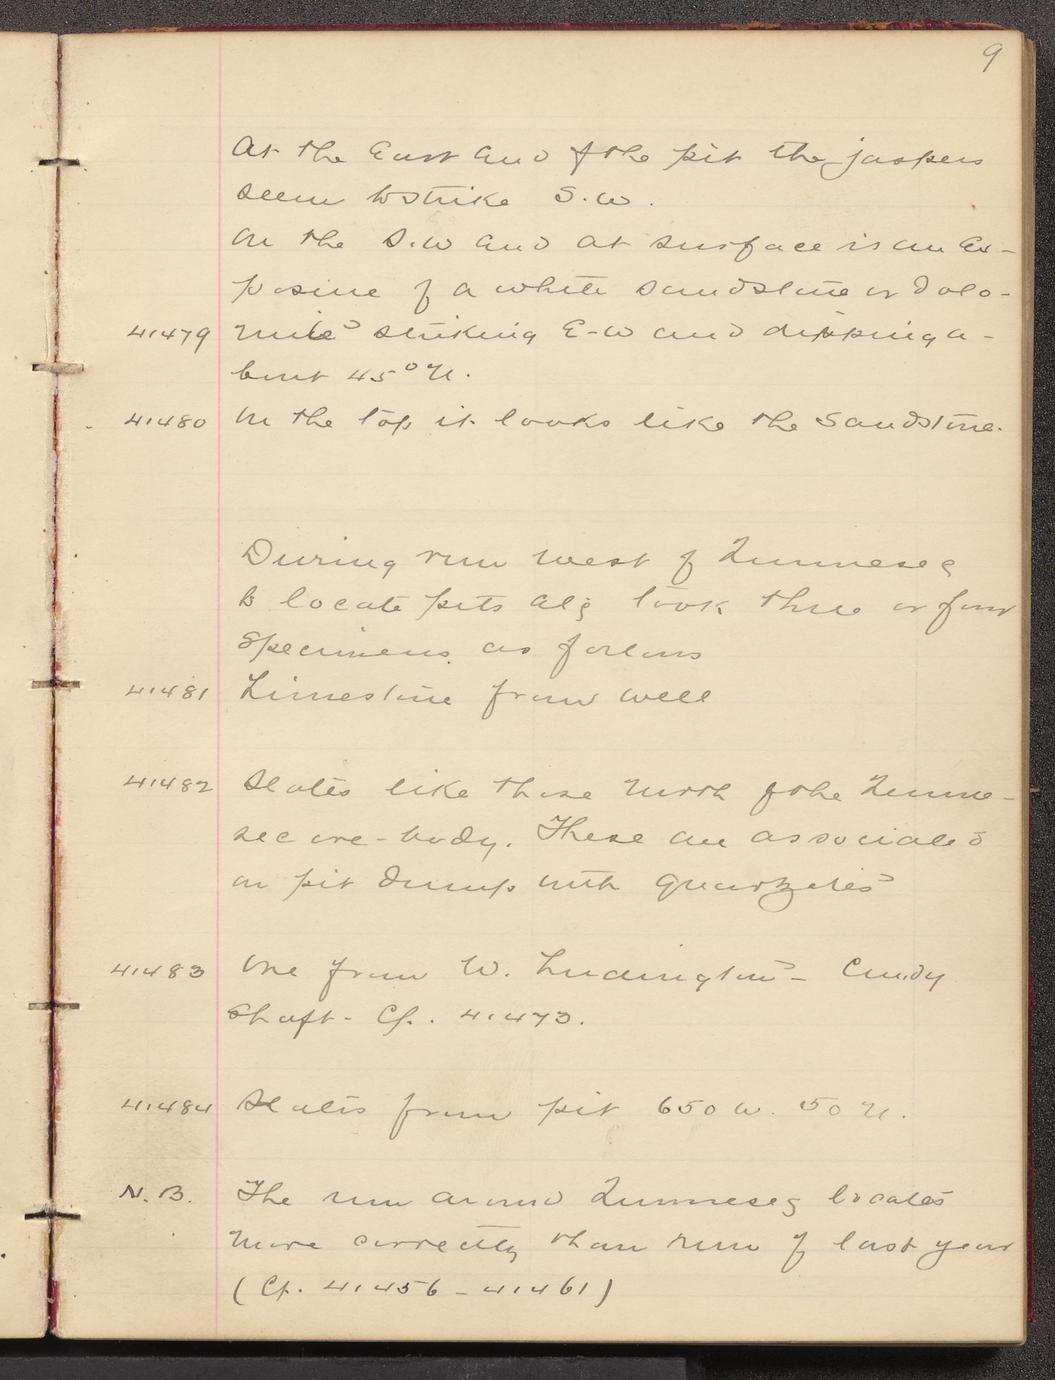 9
At the East End of the pit the jaspers
seem to strike S.W.
On the S.W End at surface is an Ex-
posure of a white Sandstone or Dolo-
41479 mite striking E-W and dipping a-
bout 45° N.
41480 On the top it looks like the Sandstone.
During run west of Quinnesec
to locate pits Alg took three or four
Specimens as follows
41481 Limestone from well
41482 Slates like those North of the Quinne-
sec ore-body. These are associated
on pit Dump with Quartzites
41483 One from W. Ludington - Cundy
Shaft - Cf. 41473.
41484 Slates from pit 650 W. 50 N.
N.B. The run around Quinnesec locates
more correctly than run of last year
(Cf. 41456 - 41461)